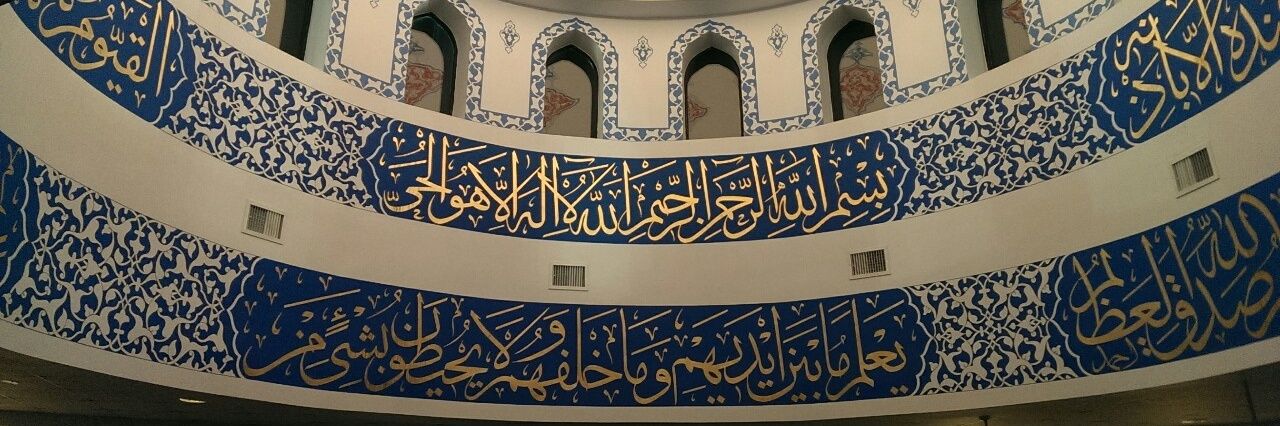 نده إلا بإذنه
بسم الله الرحمن الرحيم الله لا إله إلا هو الحي
القيوم
صدق الله العظيم
يعلم ما بين أيديهم وما خلفهم ولا يحيطون بشيء من